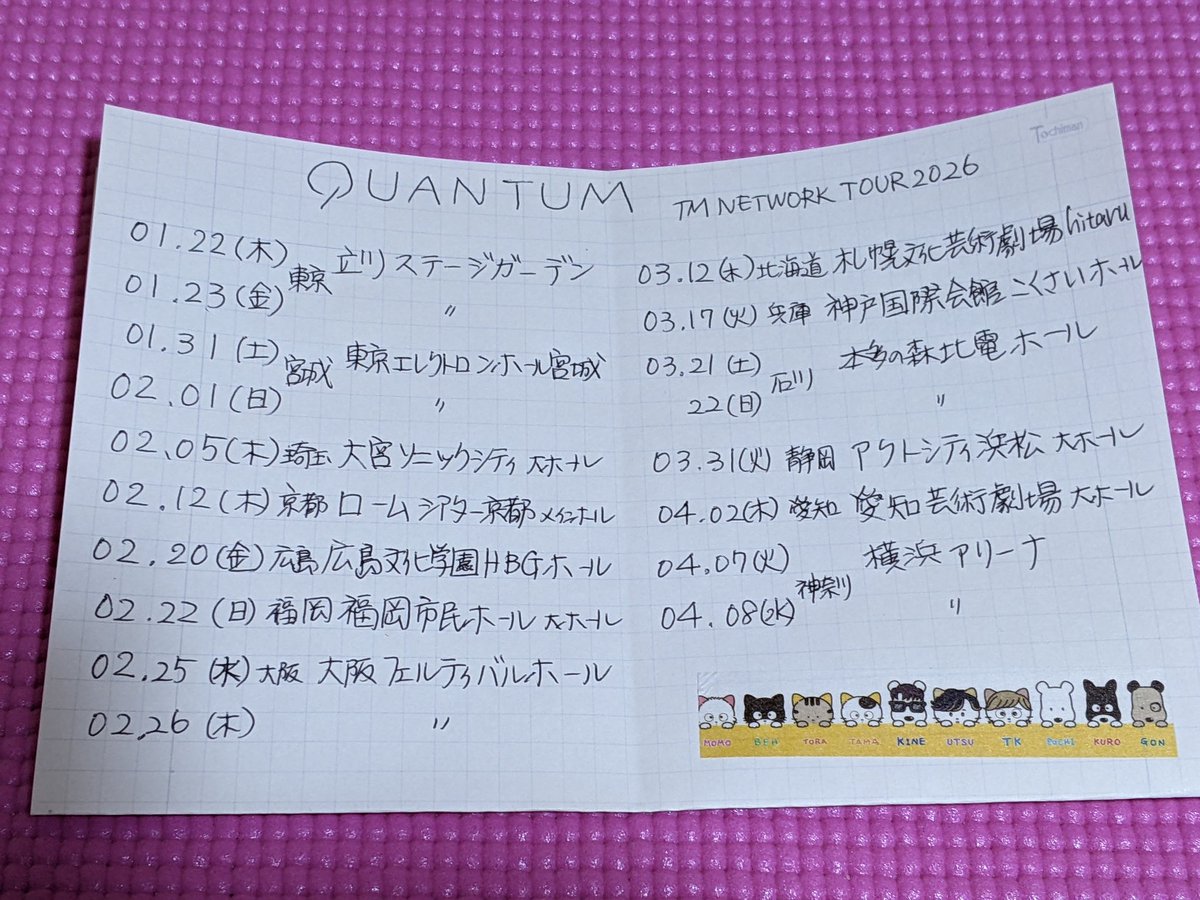 Tochiman
QUANTUM TM NETWORK TOUR 2026
01.22(木) 東京 立川ステージガーデン
01.23(金) 〃
01.31(土) 宮城 東京エレクトロンホール宮城
02.01(日) 〃
02.05(木) 埼玉 大宮ソニックシティ 大ホール
02.12(木) 京都 ロームシアター京都 メインホール
02.20(金) 広島 広島文化学園HBGホール
02.22(日) 福岡 福岡市民ホール 大ホール
02.25(水) 大阪 大阪フェルティバルホール
02.26(木) 〃
03.12(木) 北海道 札幌文化芸術劇場hitaru
03.17(火) 兵庫 神戸国際会館こくさいホール
03.21(土) 石川 本多の森北電ホール
22(日) 〃
03.31(火) 静岡 アクトシティ浜松 大ホール
04.02(木) 愛知 愛知芸術劇場 大ホール
04.07(火) 神奈川 横浜アリーナ
04.08(水) 〃
MOMO BEH TORA TAMA KINE UTSU TK POCHI KURO GON